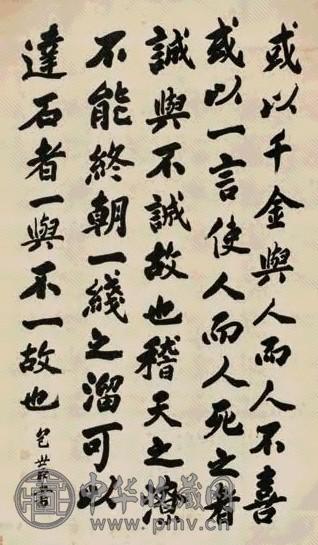 或以千金與人而人不喜
或以一言使人而人死之者
誠與不誠故也稽天之潦
不能終朝一綫之溜可以
達石者一與不一故也
包世臣書
中华收藏网
www.pmv.cn